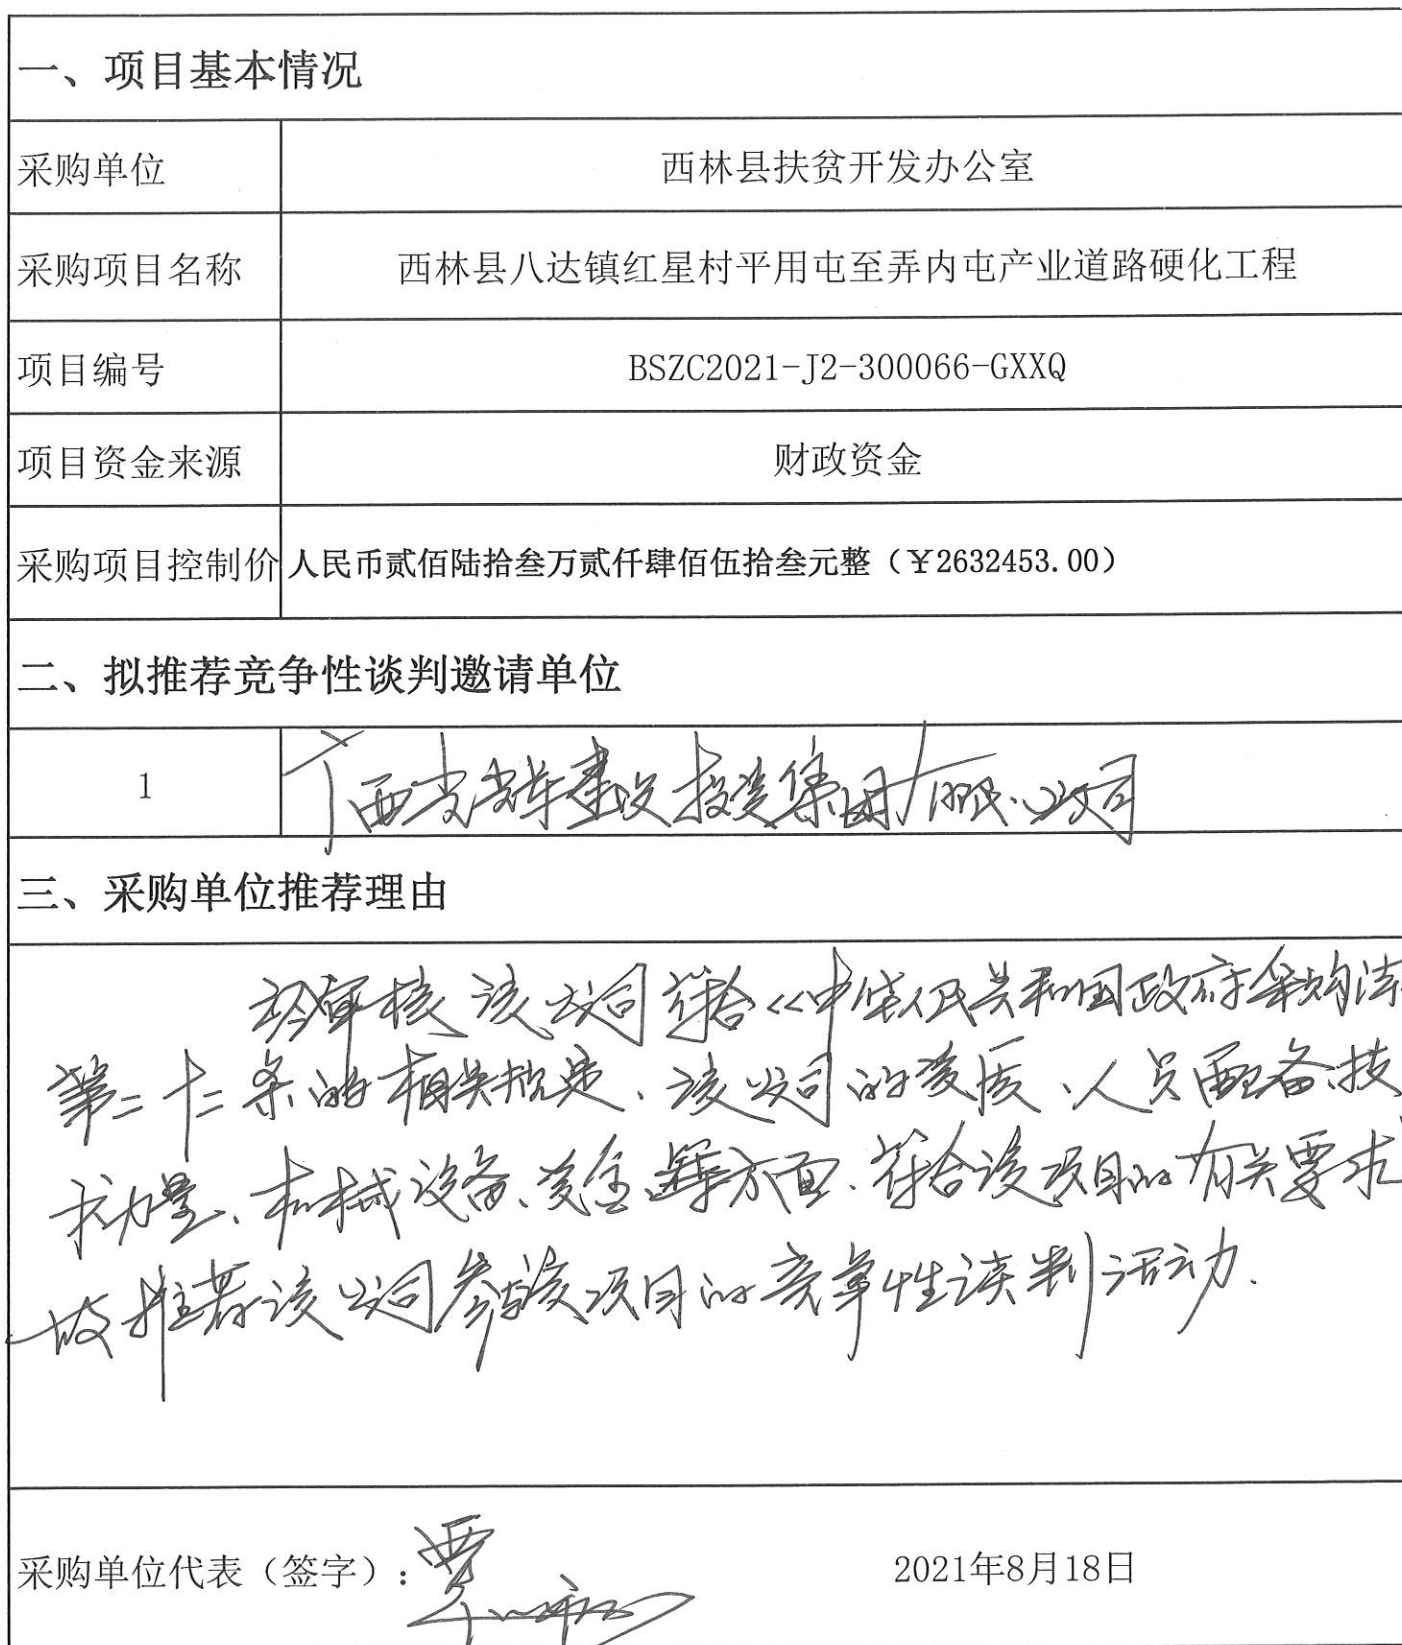 一、项目基本情况
采购单位 西林县扶贫开发办公室
采购项目名称 西林县八达镇红星村平用屯至弄内屯产业道路硬化工程
项目编号 BSZC2021-J2-300066-GXXQ
项目资金来源 财政资金
采购项目控制价 人民币贰佰陆拾叁万贰仟肆佰伍拾叁元整（￥2632453.00）
二、拟推荐竞争性谈判邀请单位
1 广西 建设投资集团有限公司
三、采购单位推荐理由
经审核该公司符合《中华人民共和国政府采购法
第二十二条的相关规定、该公司的资质、人员配备、技
术力量、机械设备、资金等方面、符合该项目的有关要求
故推荐该公司参与该项目的竞争性谈判活动.
采购单位代表（签字）：覃 2021年8月18日